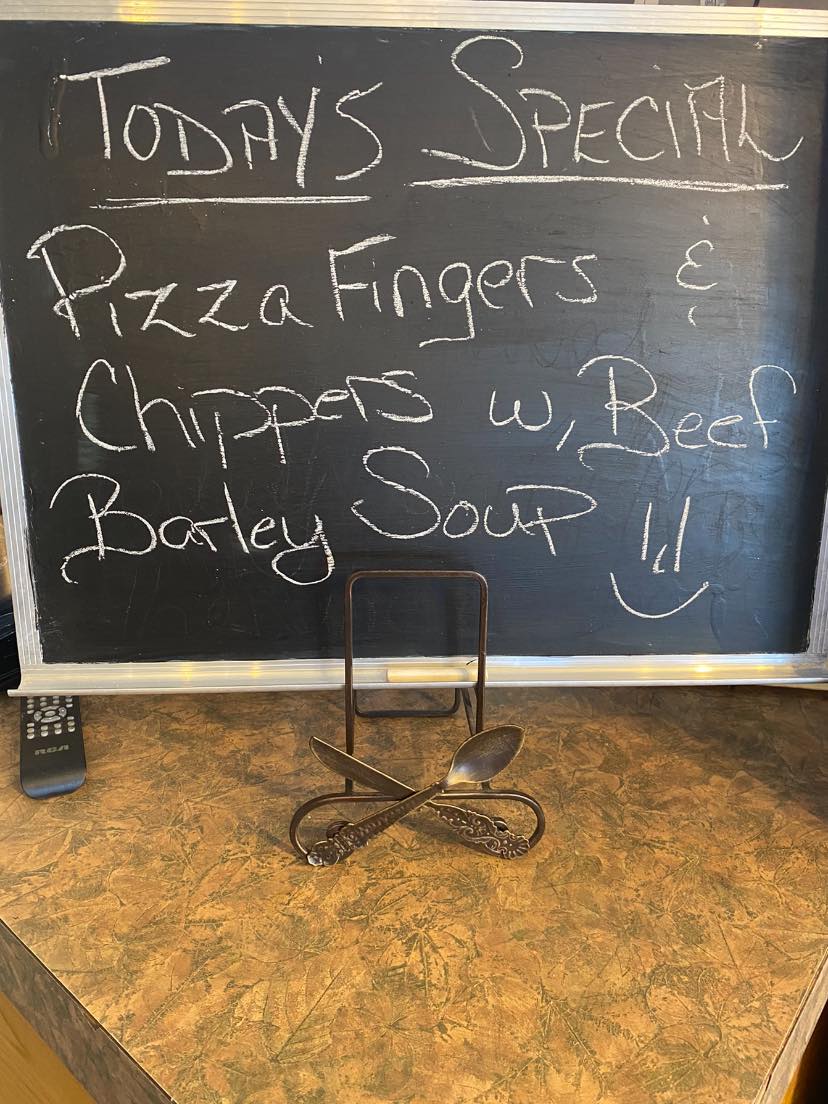 TODAY'S SPECIAL
Pizza Fingers &
Chippers w, Beef
Barley Soup
RCA